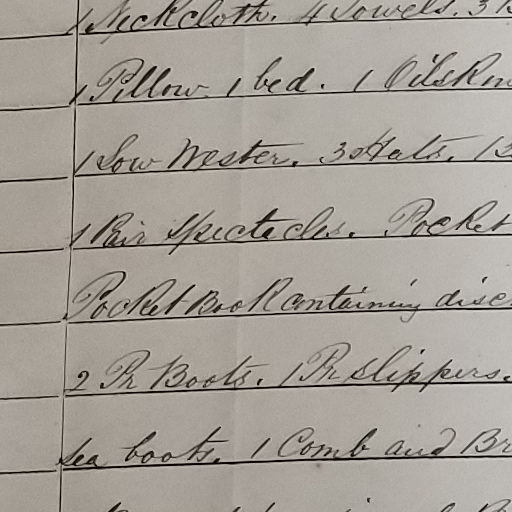 1 Neckcloth. 4 Towels. 3
1 Pillow 1 bed. 1 Oilskin
1 Sow Wester. 3 Hats. 1
1 Pair Spectecles. Pocket
Pocket Book Containing disc
2 Pr Boots. 1 Pr Slippers.
Sea boots. 1 Comb and Br